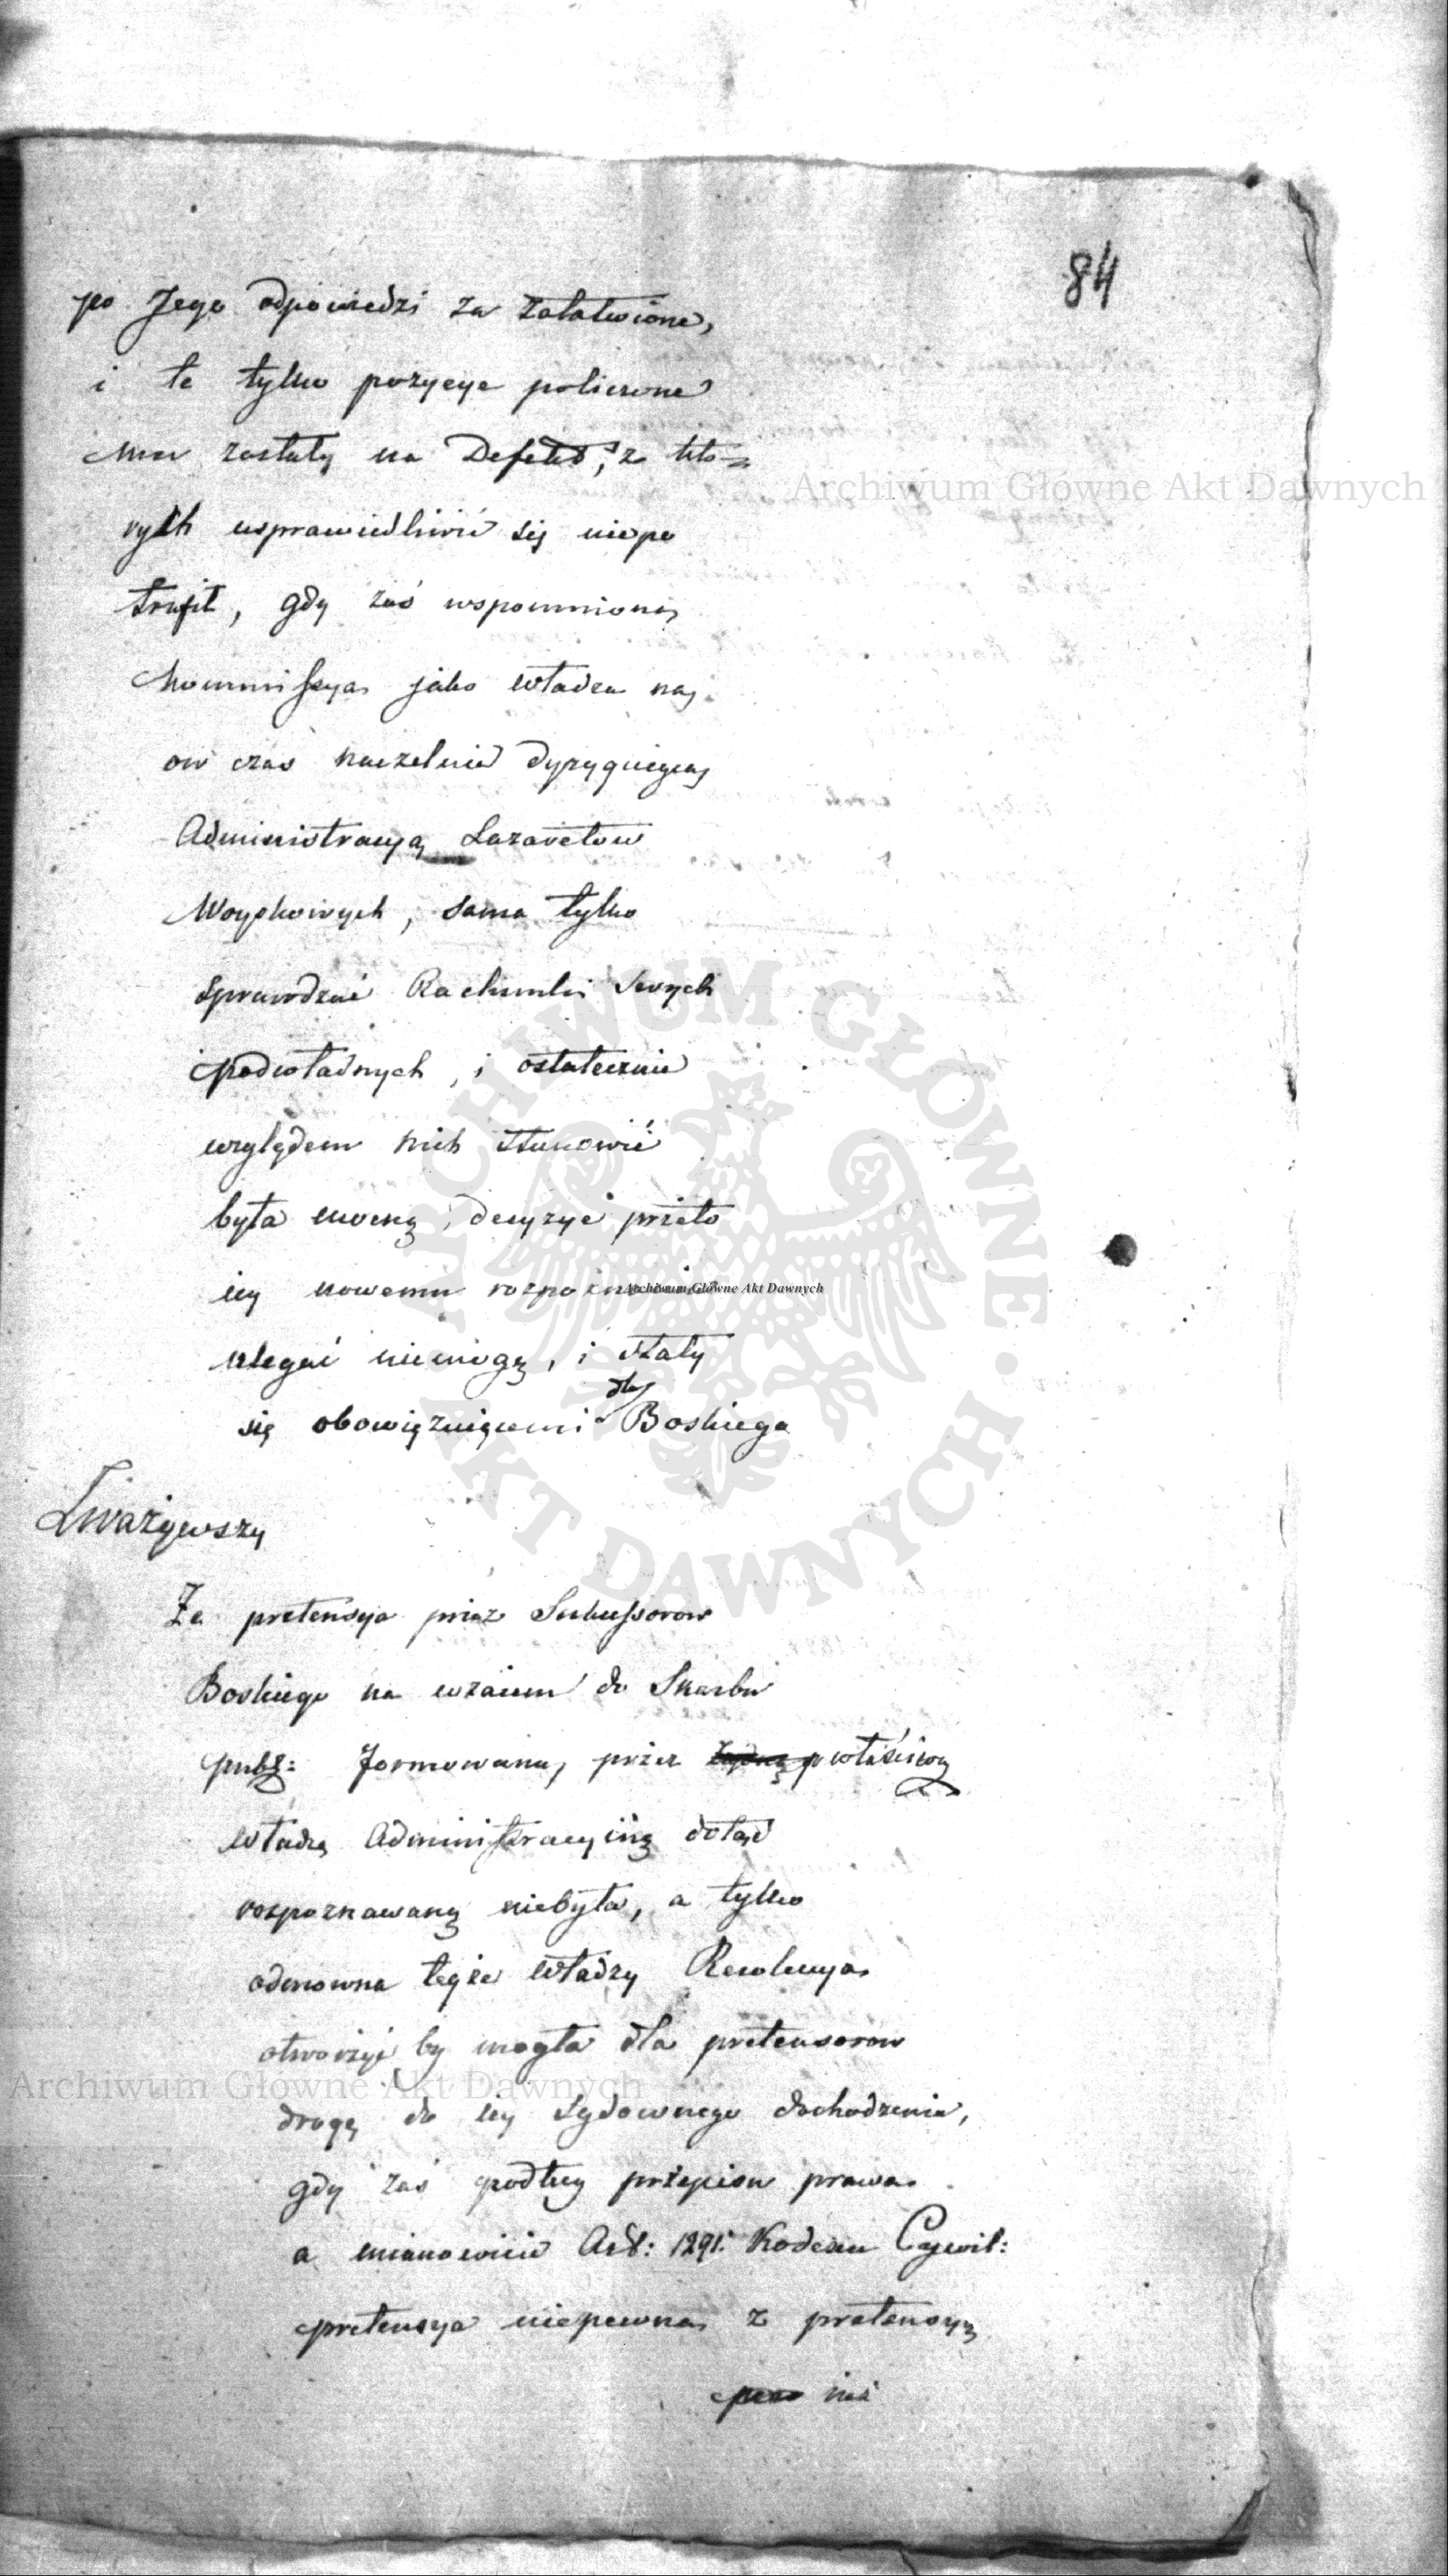 84
po Jego odpowiedzi za załatwione,
i te tylko pozycye policzone
mu zostały na Defekt, z któ=
rych usprawiedliwić się niepo
trafił, gdy zaś wspomniona
Kommissya jako władza na
ow czas naczelnie dyrygująca
Administracyą Lazaretow
Woyskowych, sama tylko
sprawdzać Rachunki swych
podwładnych, i ostatecznie
względem nich stanowić
była mocną, decyzye przeto
iey nowemu rozpoznaniu
ulegać niemogą, i stały
się obowięzuiącemi dla Boskiego
Zważywszy
Że pretensya przez Sukcessorow
Boskiego na wzaiem do Skarbu
publ: formowana, przez właściwą
władzę Administracyiną dotąd
rozpoznawaną niebyła, a tylko
odmowna teyże władzy Rezolucya
otworzyć by mogła dla pretensorow
drogę do iey sądownego dochodzenia,
gdy zaś podług przepisu prawa
a mianowicie Art: 1291. Kodexu Cywil:
pretensya niepewna z pretensyą
iuż
Archiwum Główne Akt Dawnych
Archiwum Główne Akt Dawnych
Archiwum Główne Akt Dawnych
ARCHIWUM GŁÓWNE AKT DAWNYCH